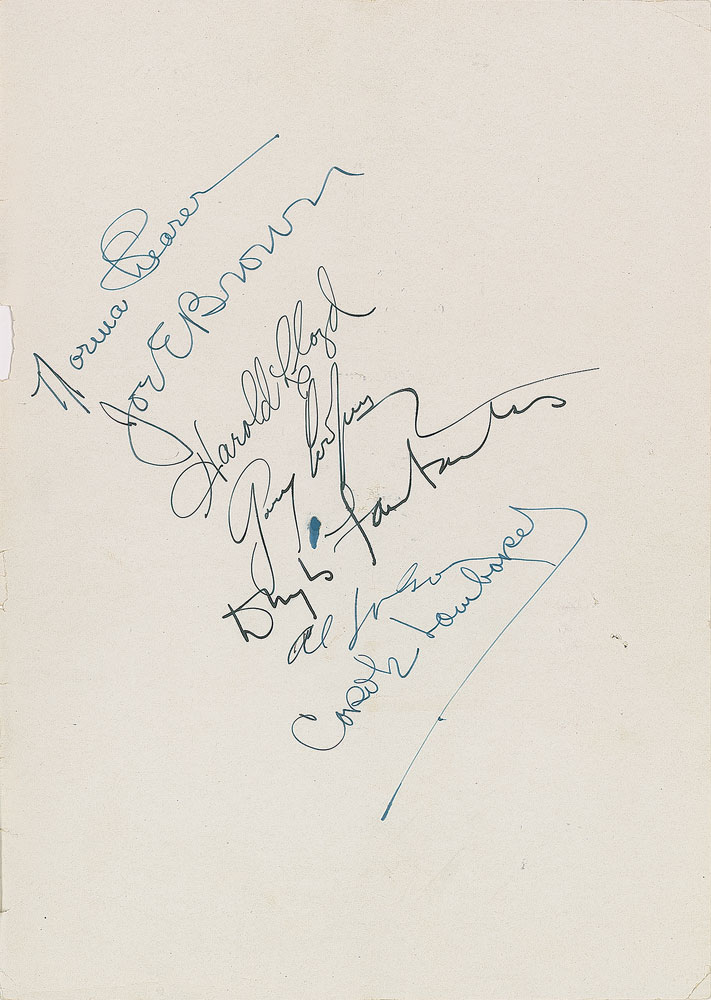 Norma Shearer
Joe E Brown
Harold Lloyd
Gary Cooper
Douglas Fairbanks
Al Jolson
Carole Lombard